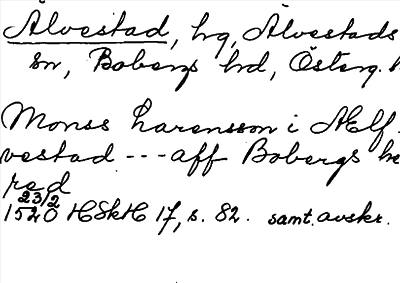 Älvestad, hg, Älvestads
sn, Bobergs hd, Österg. l
Monss Larensson i Ælf
vestad --- aff Bobergs he
red
23/2
1520 HSkH 17, s. 82. samt. avskr.